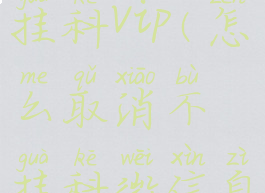 挂科VIP(怎
me qǔ xiāo bù
么取消不
guà kē wēi xìn zì
挂科微信自